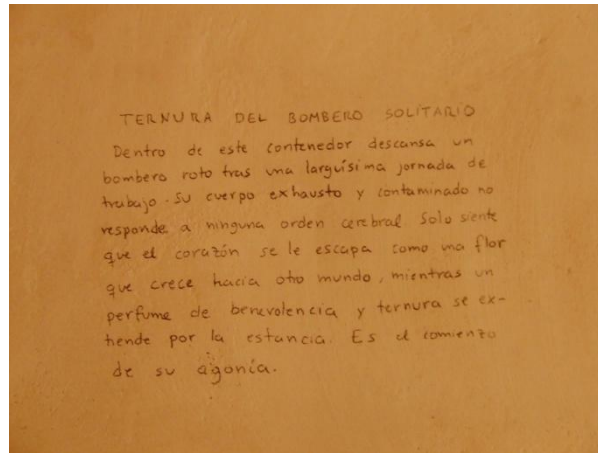 TERNURA DEL BOMBERO SOLITARIO
Dentro de este contenedor descansa un
bombero roto tras una larguísima jornada de
trabajo. Su cuerpo exhausto y contaminado no
responde a ninguna orden cerebral. Solo siente
que el corazón se le escapa como una flor
que crece hacia otro mundo, mientras un
perfume de benevolencia y ternura se ex-
tiende por la estancia. Es el comienzo
de su agonía.